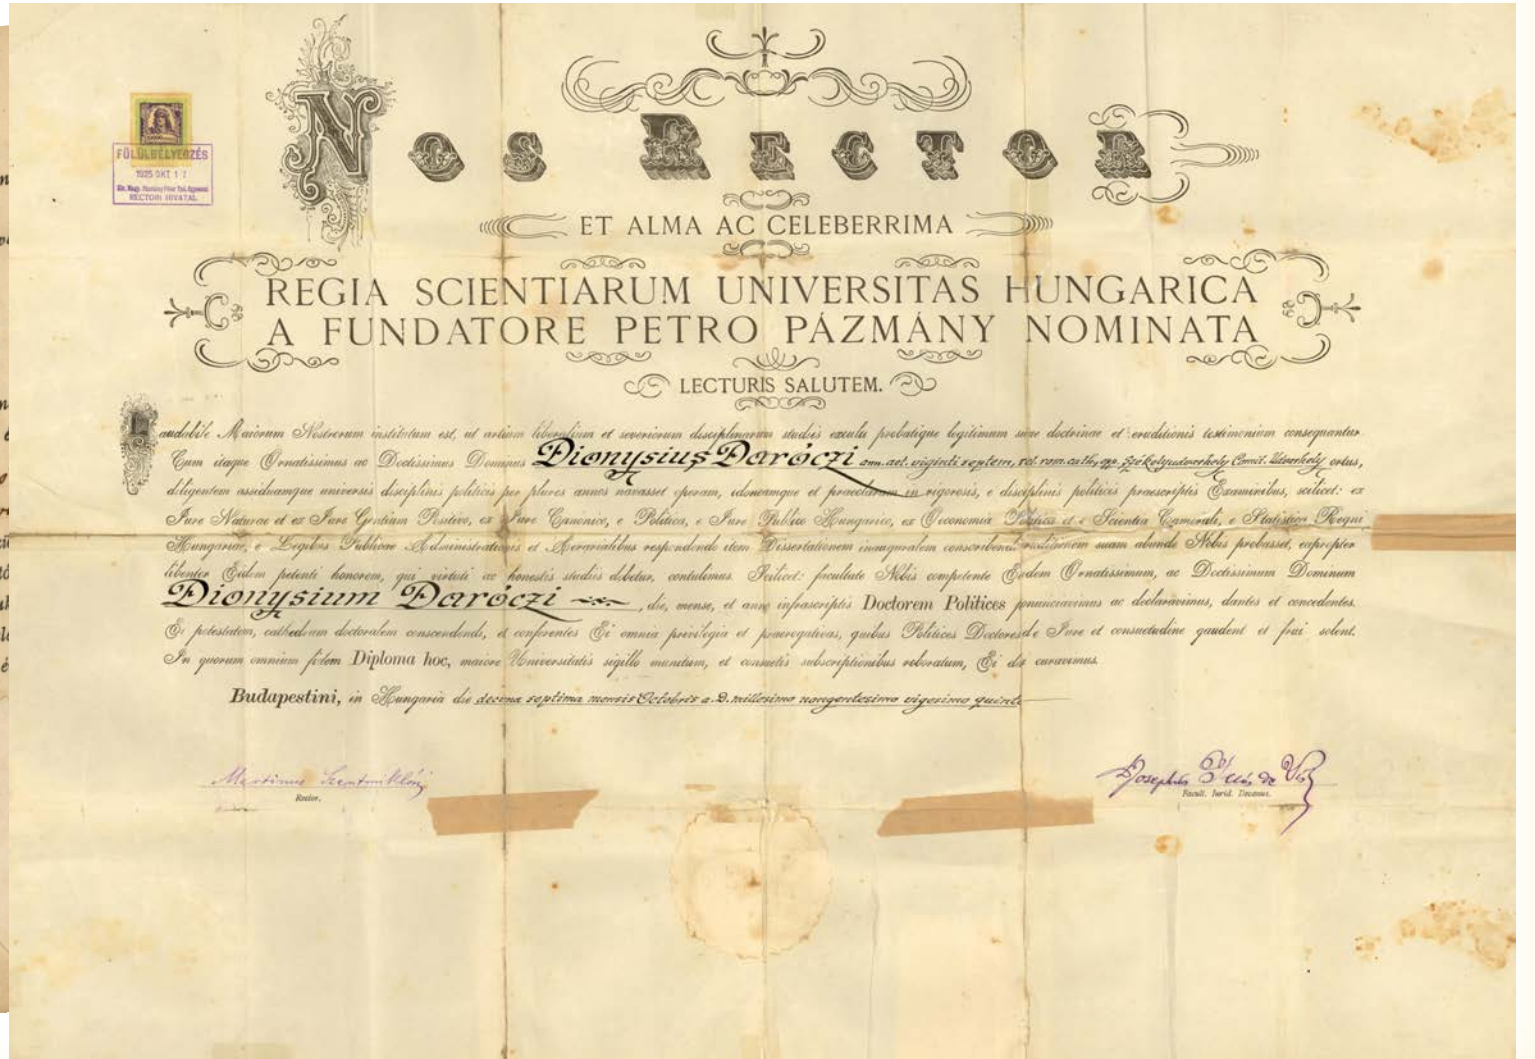 NOS RECTOR
FÖLÜLBÉLYEGZÉS
1925 OKT 17
RECTORI HIVATAL
ET ALMA AC CELEBERRIMA
REGIA SCIENTIARUM UNIVERSITAS HUNGARICA
A FUNDATORE PETRO PÁZMÁNY NOMINATA
LECTURIS SALUTEM.
Laudabile Maiorum Nostrorum institutum est, ut artium liberalium et severiorum disciplinarum studiis exculti probatique legitimum suae doctrinae et eruditionis testimonium consequantur.
Cum itaque Ornatissimus ac Doctissimus Dominus Dionysius Daróczi ann. aet. viginti septem, rel. rom. cath., Székelyudvarhely Comit. Udvarhely ortus,
diligentem assiduamque universis disciplinis politicis per plures annos navasset operam, idoneamque et praeclaram in rigorosis, e disciplinis politicis praescriptis Examinibus, scilicet: ex
Jure Naturae et ex Jure Gentium Positivo, ex Jure Canonico, e Politica, e Jure Publico Hungarico, ex Oeconomia Politica et e Scientia Camerali, e Statistica Regni
Hungariae, e Legibus Publicae Administrationis et Aerarialibus respondendo item Dissertationem inauguralem conscribendo eruditionem suam abunde Nobis probasset, eapropter
libenter Eidem petenti honorem, qui virtuti ac honestis studiis debetur, contulimus. Scilicet: facultate Nobis competente Eundem Ornatissimum, ac Doctissimum Dominum
Dionysium Daróczi, die, mense, et anno infrascriptis Doctorem Politices pronunciavimus ac declaravimus, dantes et concedentes
Ei potestatem, cathedram doctoralem conscendendi, et conferentes Ei omnia privilegia et praerogativas, quibus Politices Doctores de Jure et consuetudine gaudent et frui solent.
In quorum omnium fidem Diploma hoc, maiore Universitatis sigillo munitum, et consuetis subscriptionibus roboratum, Ei dari curavimus.
Budapestini, in Hungaria die decima septima mensis Octobris a. D. millesimo nongentesimo vigesimo quinto
Martinus Szentmiklósi
Rector.
Josephus Illés de
Facult. Iurid. Decanus.